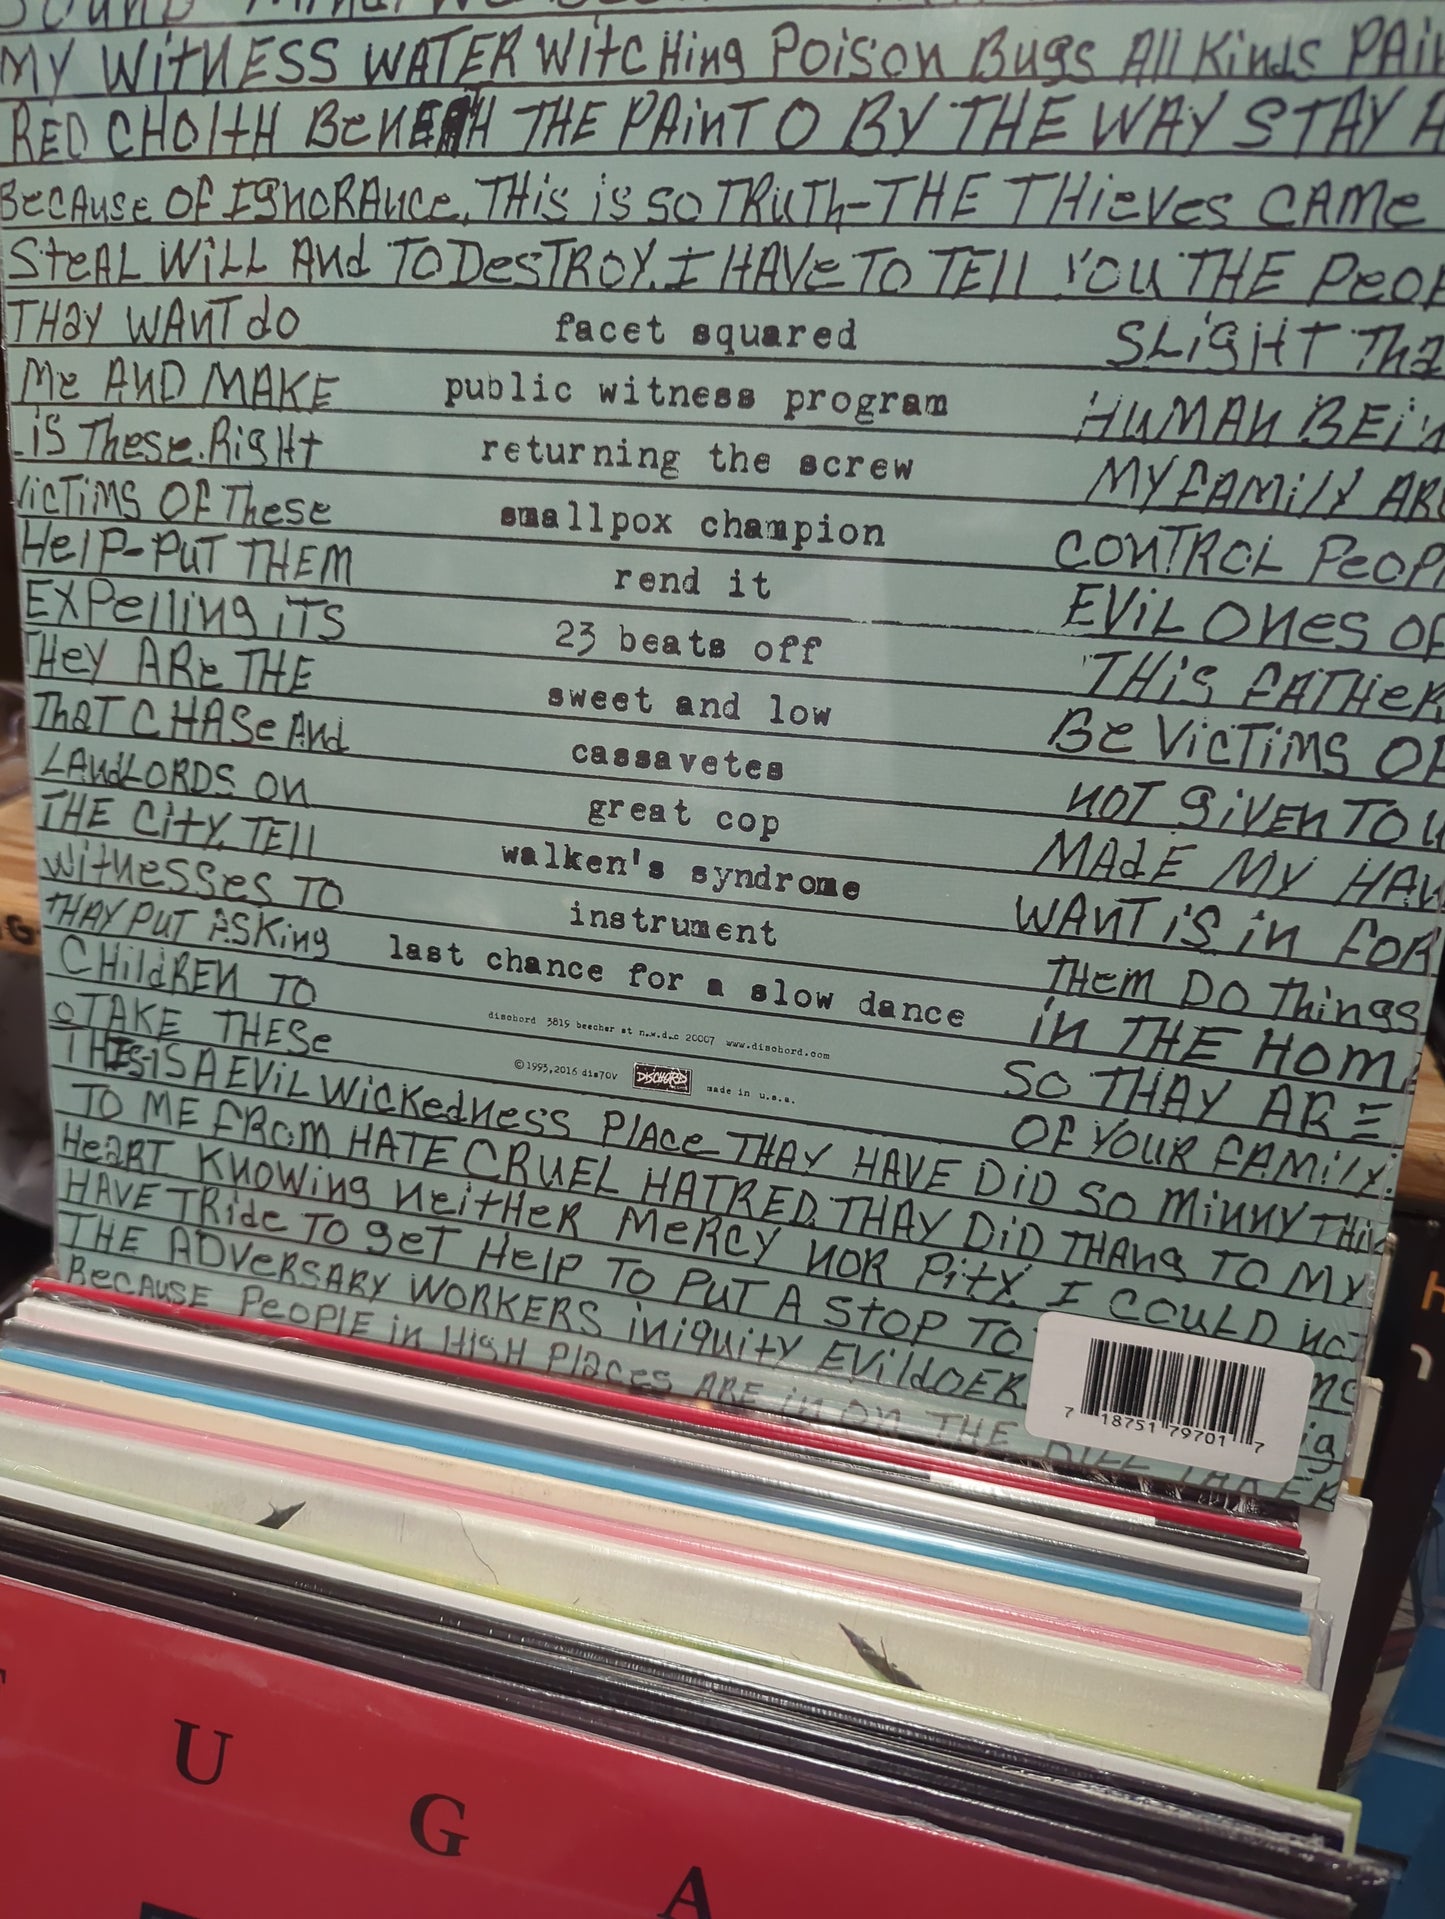 SOUND MIND. WE BEEN
MY WITNESS WATER WITCHing POISON BUgS All Kinds PAiN
RED CHOItH BeNEATH THE PAiNT O BY THE WAY STAY A
BeCAUse OF IgNORANce. THis is so TRUTh-THE THieVes CAMe
STeAL WiLL ANd TO DesTROY. I HAVe TO TEll YOU THE PeOP
THAY WANT dO facet squared SLigHT THa
Me AND MAKE public witness program HUMAN BEiN
is THese. RigHt returning the screw MY FAMilY ARe
VicTiMS OF THese smallpox champion CONTROL PeOPl
HelP-PUT THEM rend it EViL ONes OF
EXPelliNg iTS 23 beats off THis FATHeR
THeY ARe THE sweet and low Be VicTiMS OF
THaT CHASe ANd cassavetes NOT giVEN TO U
LANdLORDS ON great cop MAdE MY HAN
THE CiTY. TEll walken's syndrome WANT iS iN FOR
WiTNesses TO instrument THeM DO THings
THAY PUT ASKing last chance for a slow dance iN THE HOM
CHildREN TO dischord 3819 beecher st n.w.d.c 20007 www.dischord.com SO THAY ARE
oTAKE THESe ©1993,2016 dis70V DISCHORD made in u.s.a. OF YOUR FAMilY.
THIS-IS A EViL WicKedNess PlAce THAY HAVE DiD SO MiNNY THiN
TO ME FROM HATE CRUEL HATRED. THAY DiD THANg TO MY
HeaRT KNOWiNg NeitHeR MeRCY NOR PitY. I COULD NOT
HAVE TRide TO geT HelP TO PUT A STOP TO
THE ADVeRSARY WORKERS iNiqUitY EVildOER
BeCAUSE PeOPLE iN HigH PlAces ARE iN ON THE
7 18751 79701 7
U G A